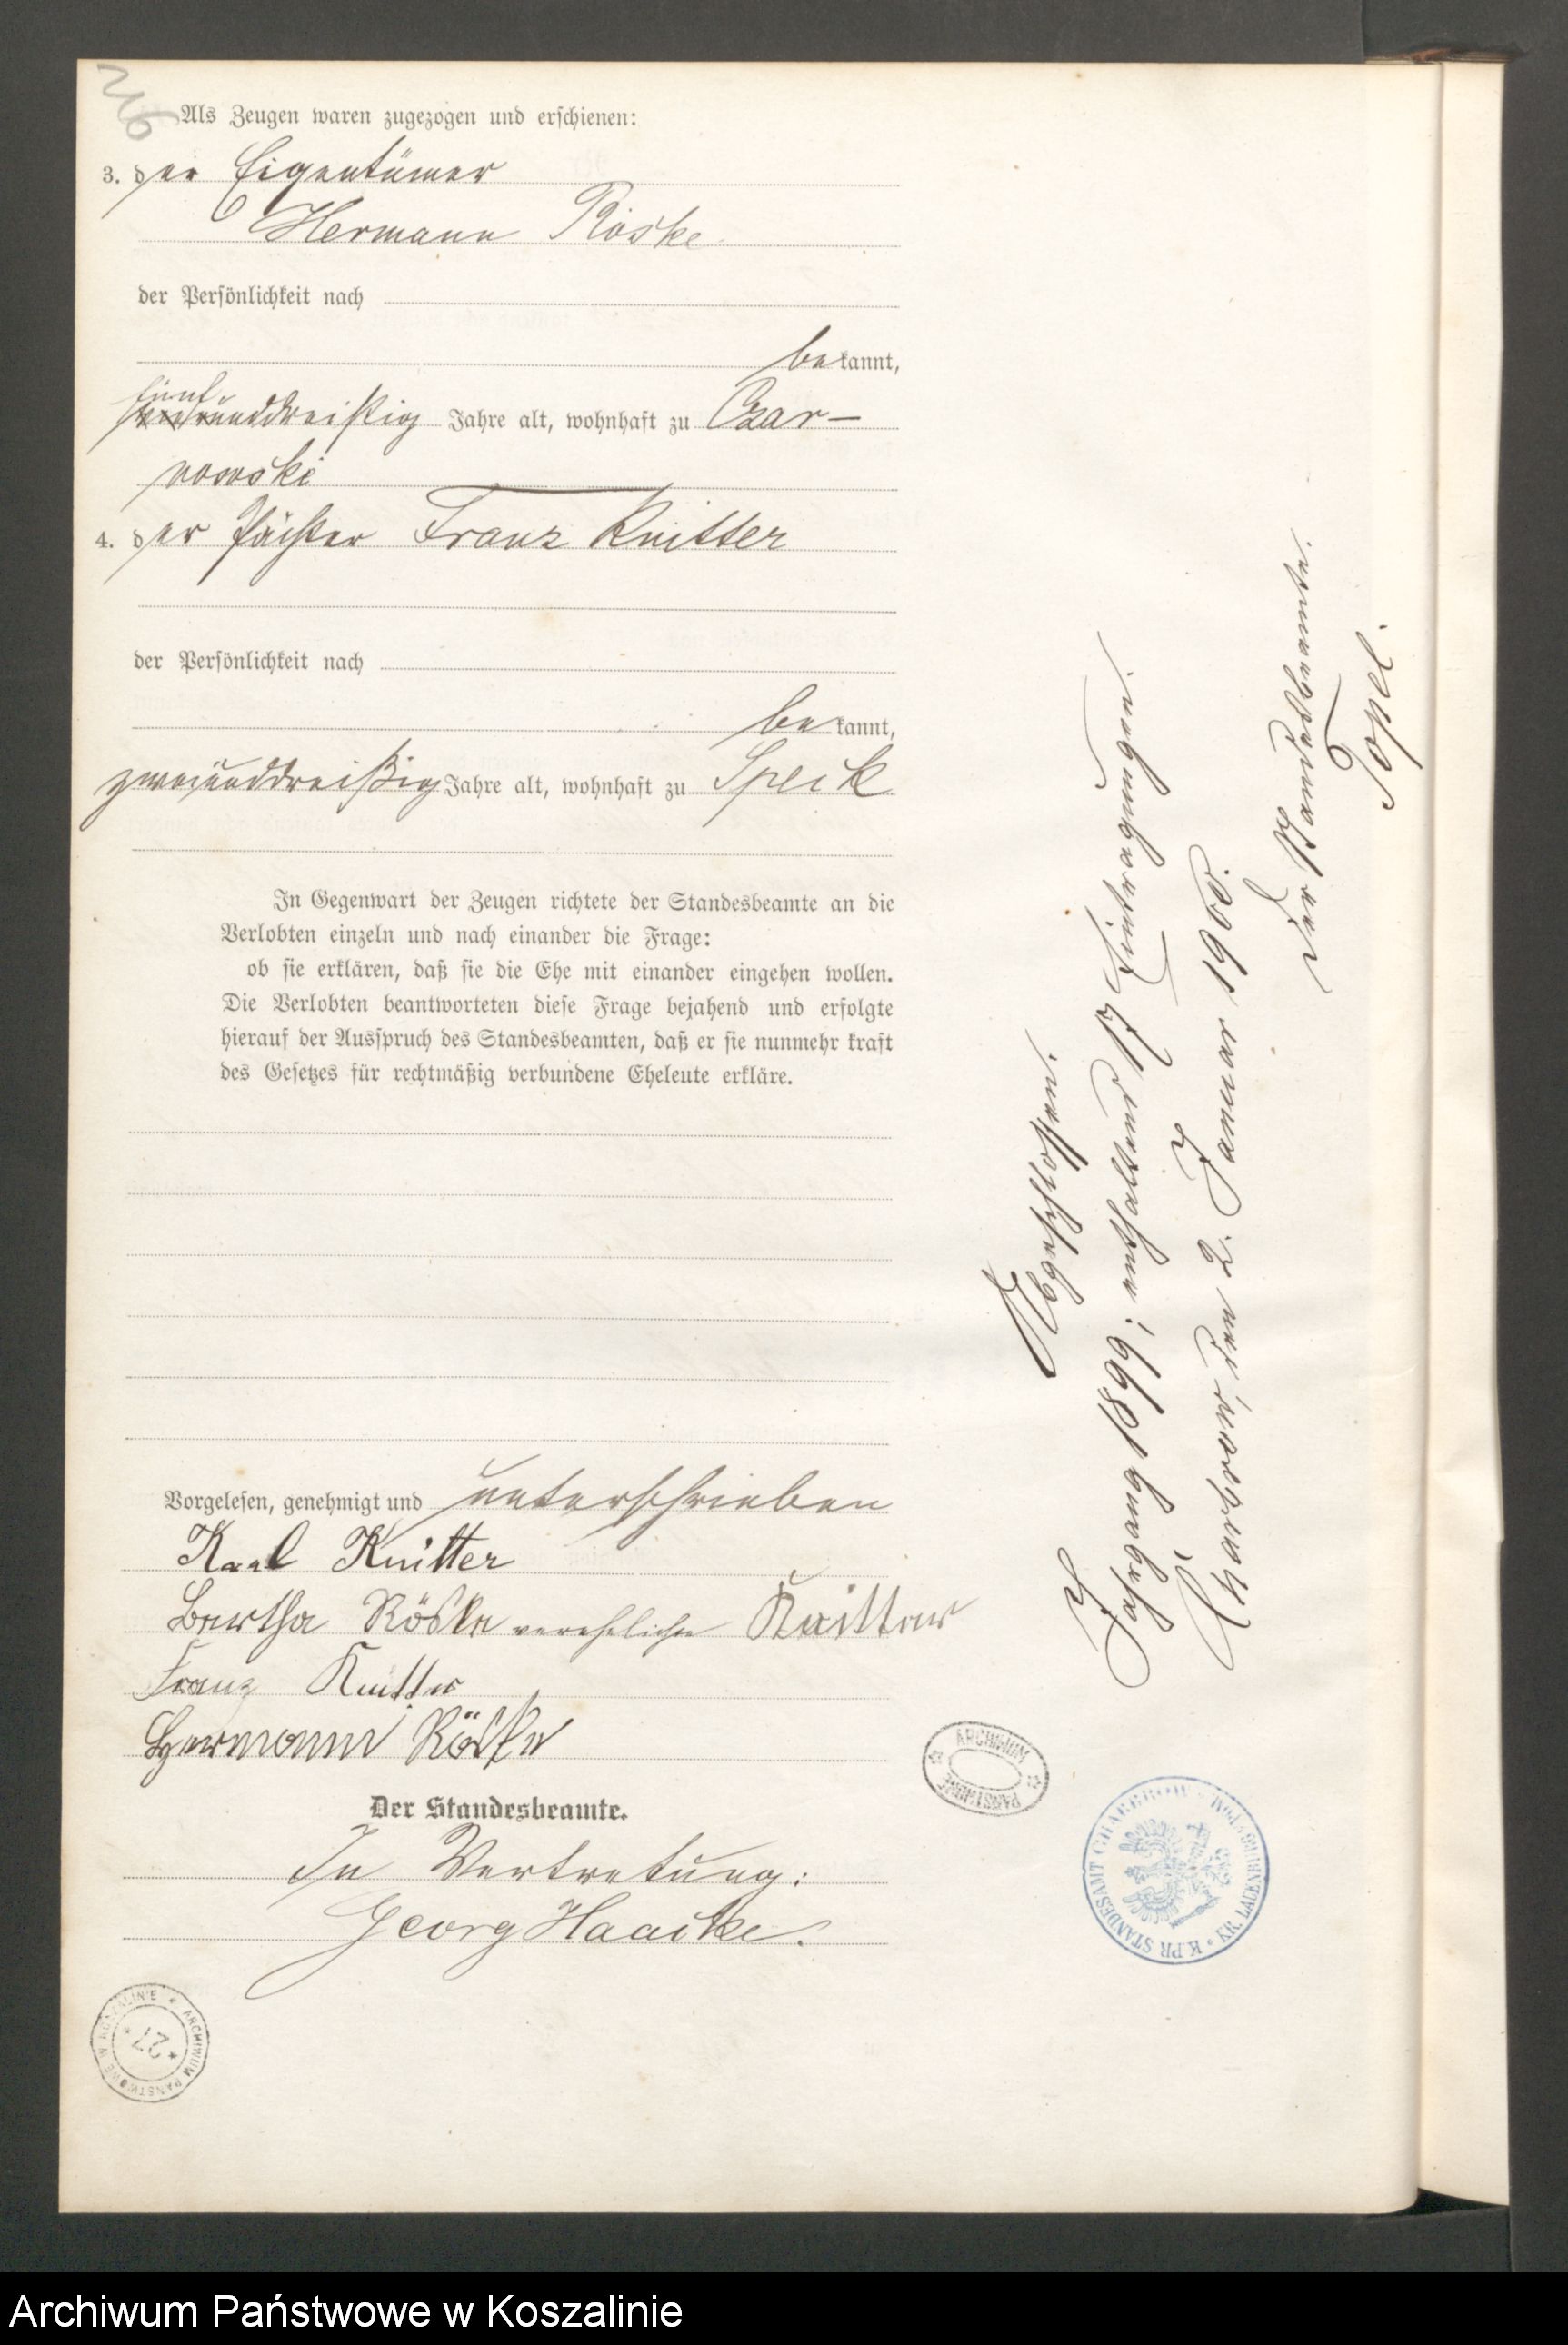 Als Zeugen waren zugezogen und erschienen:
3. der Eigentümer
Hermann Röske
der Persönlichkeit nach
bekannt,
fünf
unddreißig Jahre alt, wohnhaft zu Czar-
nowski
4. der Pächter Franz Knitter
der Persönlichkeit nach
bekannt,
zweiunddreißig Jahre alt, wohnhaft zu Speck
In Gegenwart der Zeugen richtete der Standesbeamte an die
Verlobten einzeln und nach einander die Frage:
ob sie erklären, daß sie die Ehe mit einander eingehen wollen.
Die Verlobten beantworteten diese Frage bejahend und erfolgte
hierauf der Ausspruch des Standesbeamten, daß er sie nunmehr kraft
des Gesetzes für rechtmäßig verbundene Eheleute erkläre.
Vorgelesen, genehmigt und unterschrieben
Karl Knitter
Bertha Röske verehelichte Knitter
Franz Knitter
Hermann Röske
Der Standesbeamte.
In Vertretung:
Georg Haacke.
Abgeschlossen.
Jahrgang 1899; enthaltend 17 Eintragungen.
Charbrow, den 2. Januar 1900.
Der Standesbeamte.
Topel.
ARCHIWUM PAŃSTWOWE
K. PR. STANDESAMT CHARBROW KR. LAUENBURG
ARCHIWUM PAŃSTWOWE W KOSZALINIE
* 27 *
Archiwum Państwowe w Koszalinie